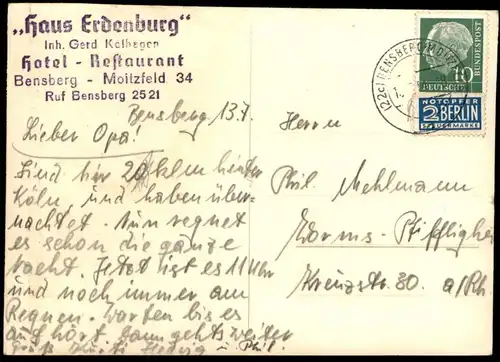 „Haus Erdenburg"
Inh. Gerd Kelbegen
Hotel - Restaurant
Bensberg - Moitzfeld 34
Ruf Bensberg 2521
Bensberg 13.7.
Lieber Opa!
Sind hir 20 klm hinter
Köln, und haben über-
nachtet. Nun regnet
es schon die ganze
nacht. Jetzt ist es 11 Uhr
und noch immer am
Regnen. warten bis es
auf hört. dann gehts weiter
Hedwig u Phil.
(22c) BENSBERG
10
DEUTSCHE
BUNDESPOST
NOTOPFER
2 BERLIN
STEUERMARKE
Herrn
Phil. Mehlmann
Worms-Pfiffligheim
Kreuzstr. 30. a/Rh